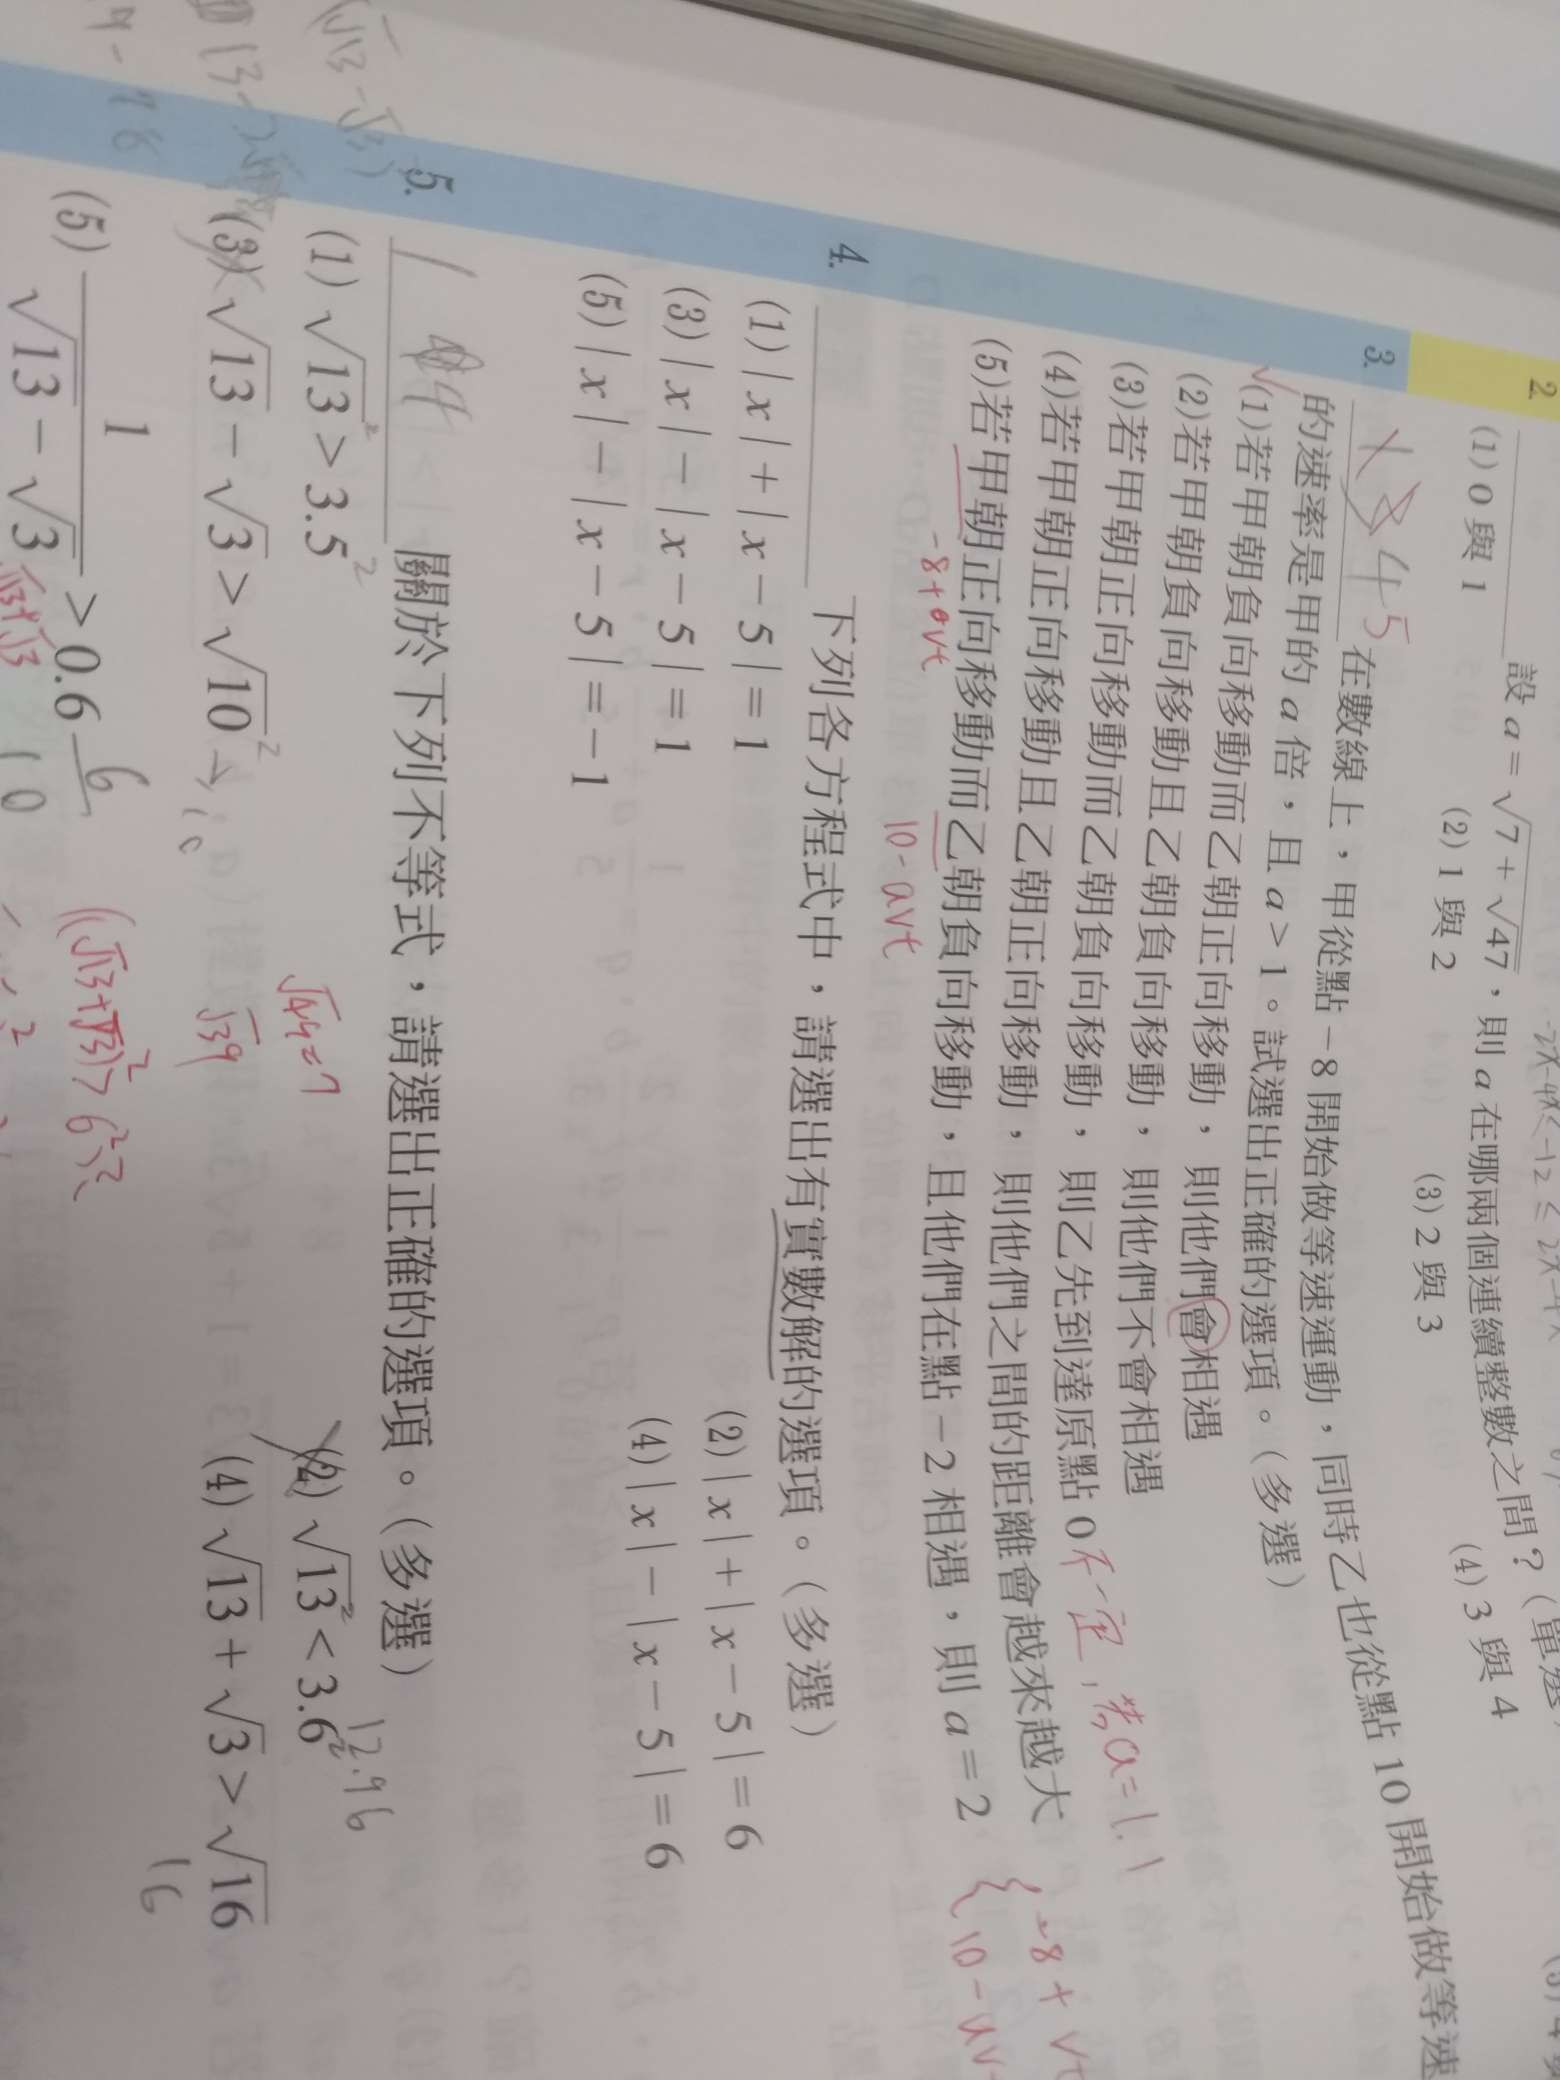 2. 設 a = √(7 + √47),則 a 在哪兩個連續整數之間?(單選)
(1) 0 與 1 (2) 1 與 2 (3) 2 與 3 (4) 3 與 4
3. 4 5 在數線上,甲從點 -8 開始做等速運動,同時乙也從點 10 開始做等速
的速率是甲的 a 倍,且 a > 1。試選出正確的選項。(多選)
(1)若甲朝負向移動而乙朝正向移動,則他們會相遇
(2)若甲朝負向移動且乙朝負向移動,則他們不會相遇
(3)若甲朝正向移動而乙朝負向移動,則乙先到達原點 0 不一定,若a=1.1
(4)若甲朝正向移動且乙朝正向移動,則他們之間的距離會越來越大
(5)若甲朝正向移動而乙朝負向移動,且他們在點 -2 相遇,則 a = 2
10-avt
4. 下列各方程式中,請選出有實數解的選項。(多選)
(1) | x | + | x - 5 | = 1 (2) | x | + | x - 5 | = 6
(3) | x | - | x - 5 | = 1 (4) | x | - | x - 5 | = 6
(5) | x | - | x - 5 | = -1
5. 1 4 關於下列不等式,請選出正確的選項。(多選)
(1) √13² > 3.5² (2) √13² < 3.6² 12.96
(3) √13 - √3 > √10² (4) √13 + √3 > √16
√39 16
(5) 1/(√13 - √3) > 0.6